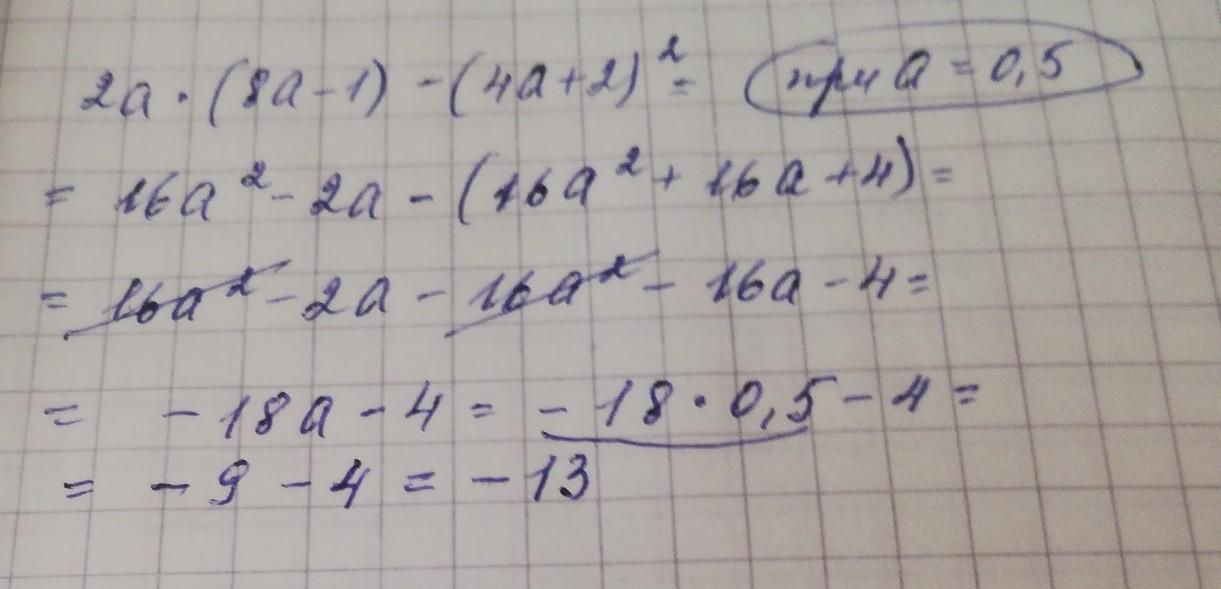 2a · (8a - 1) - (4a + 2)² = при a = 0,5
= 16a² - 2a - (16a² + 16a + 4) =
= 16a² - 2a - 16a² - 16a - 4 =
= - 18a - 4 = - 18 · 0,5 - 4 =
= - 9 - 4 = - 13